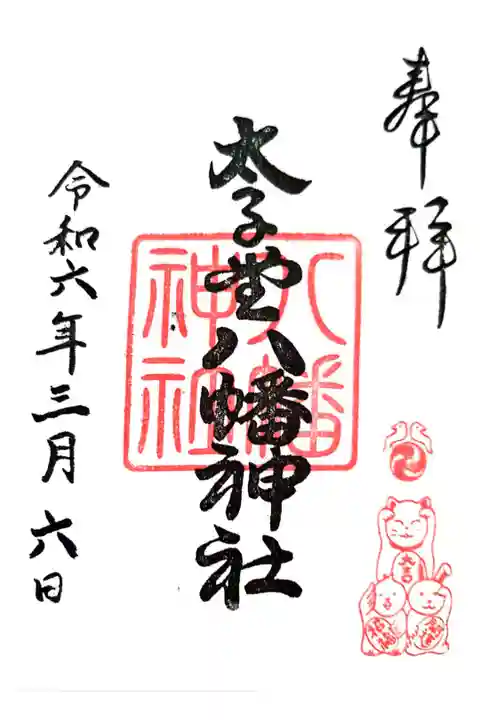 奉拝
太子堂八幡神社
八幡
神社
令和六年三月六日
大吉